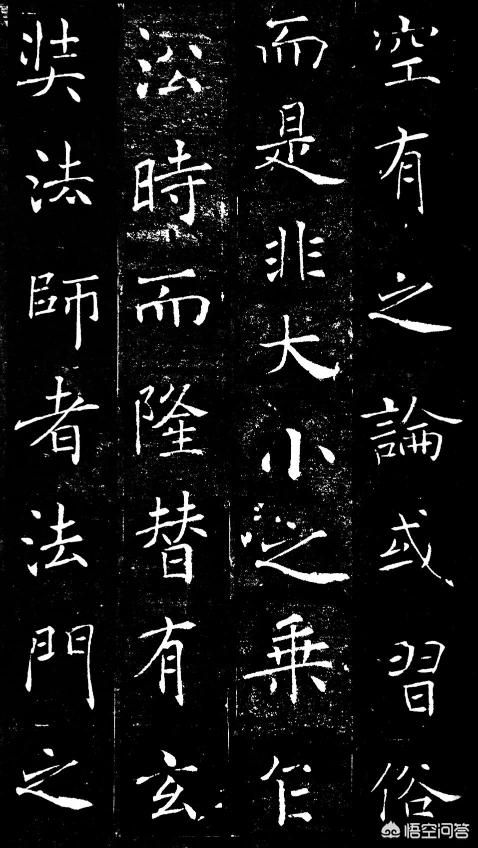 空有之論或習俗
而是非大小之乗乍
沿時而隆替有玄
奘法師者法門之
悟空问答